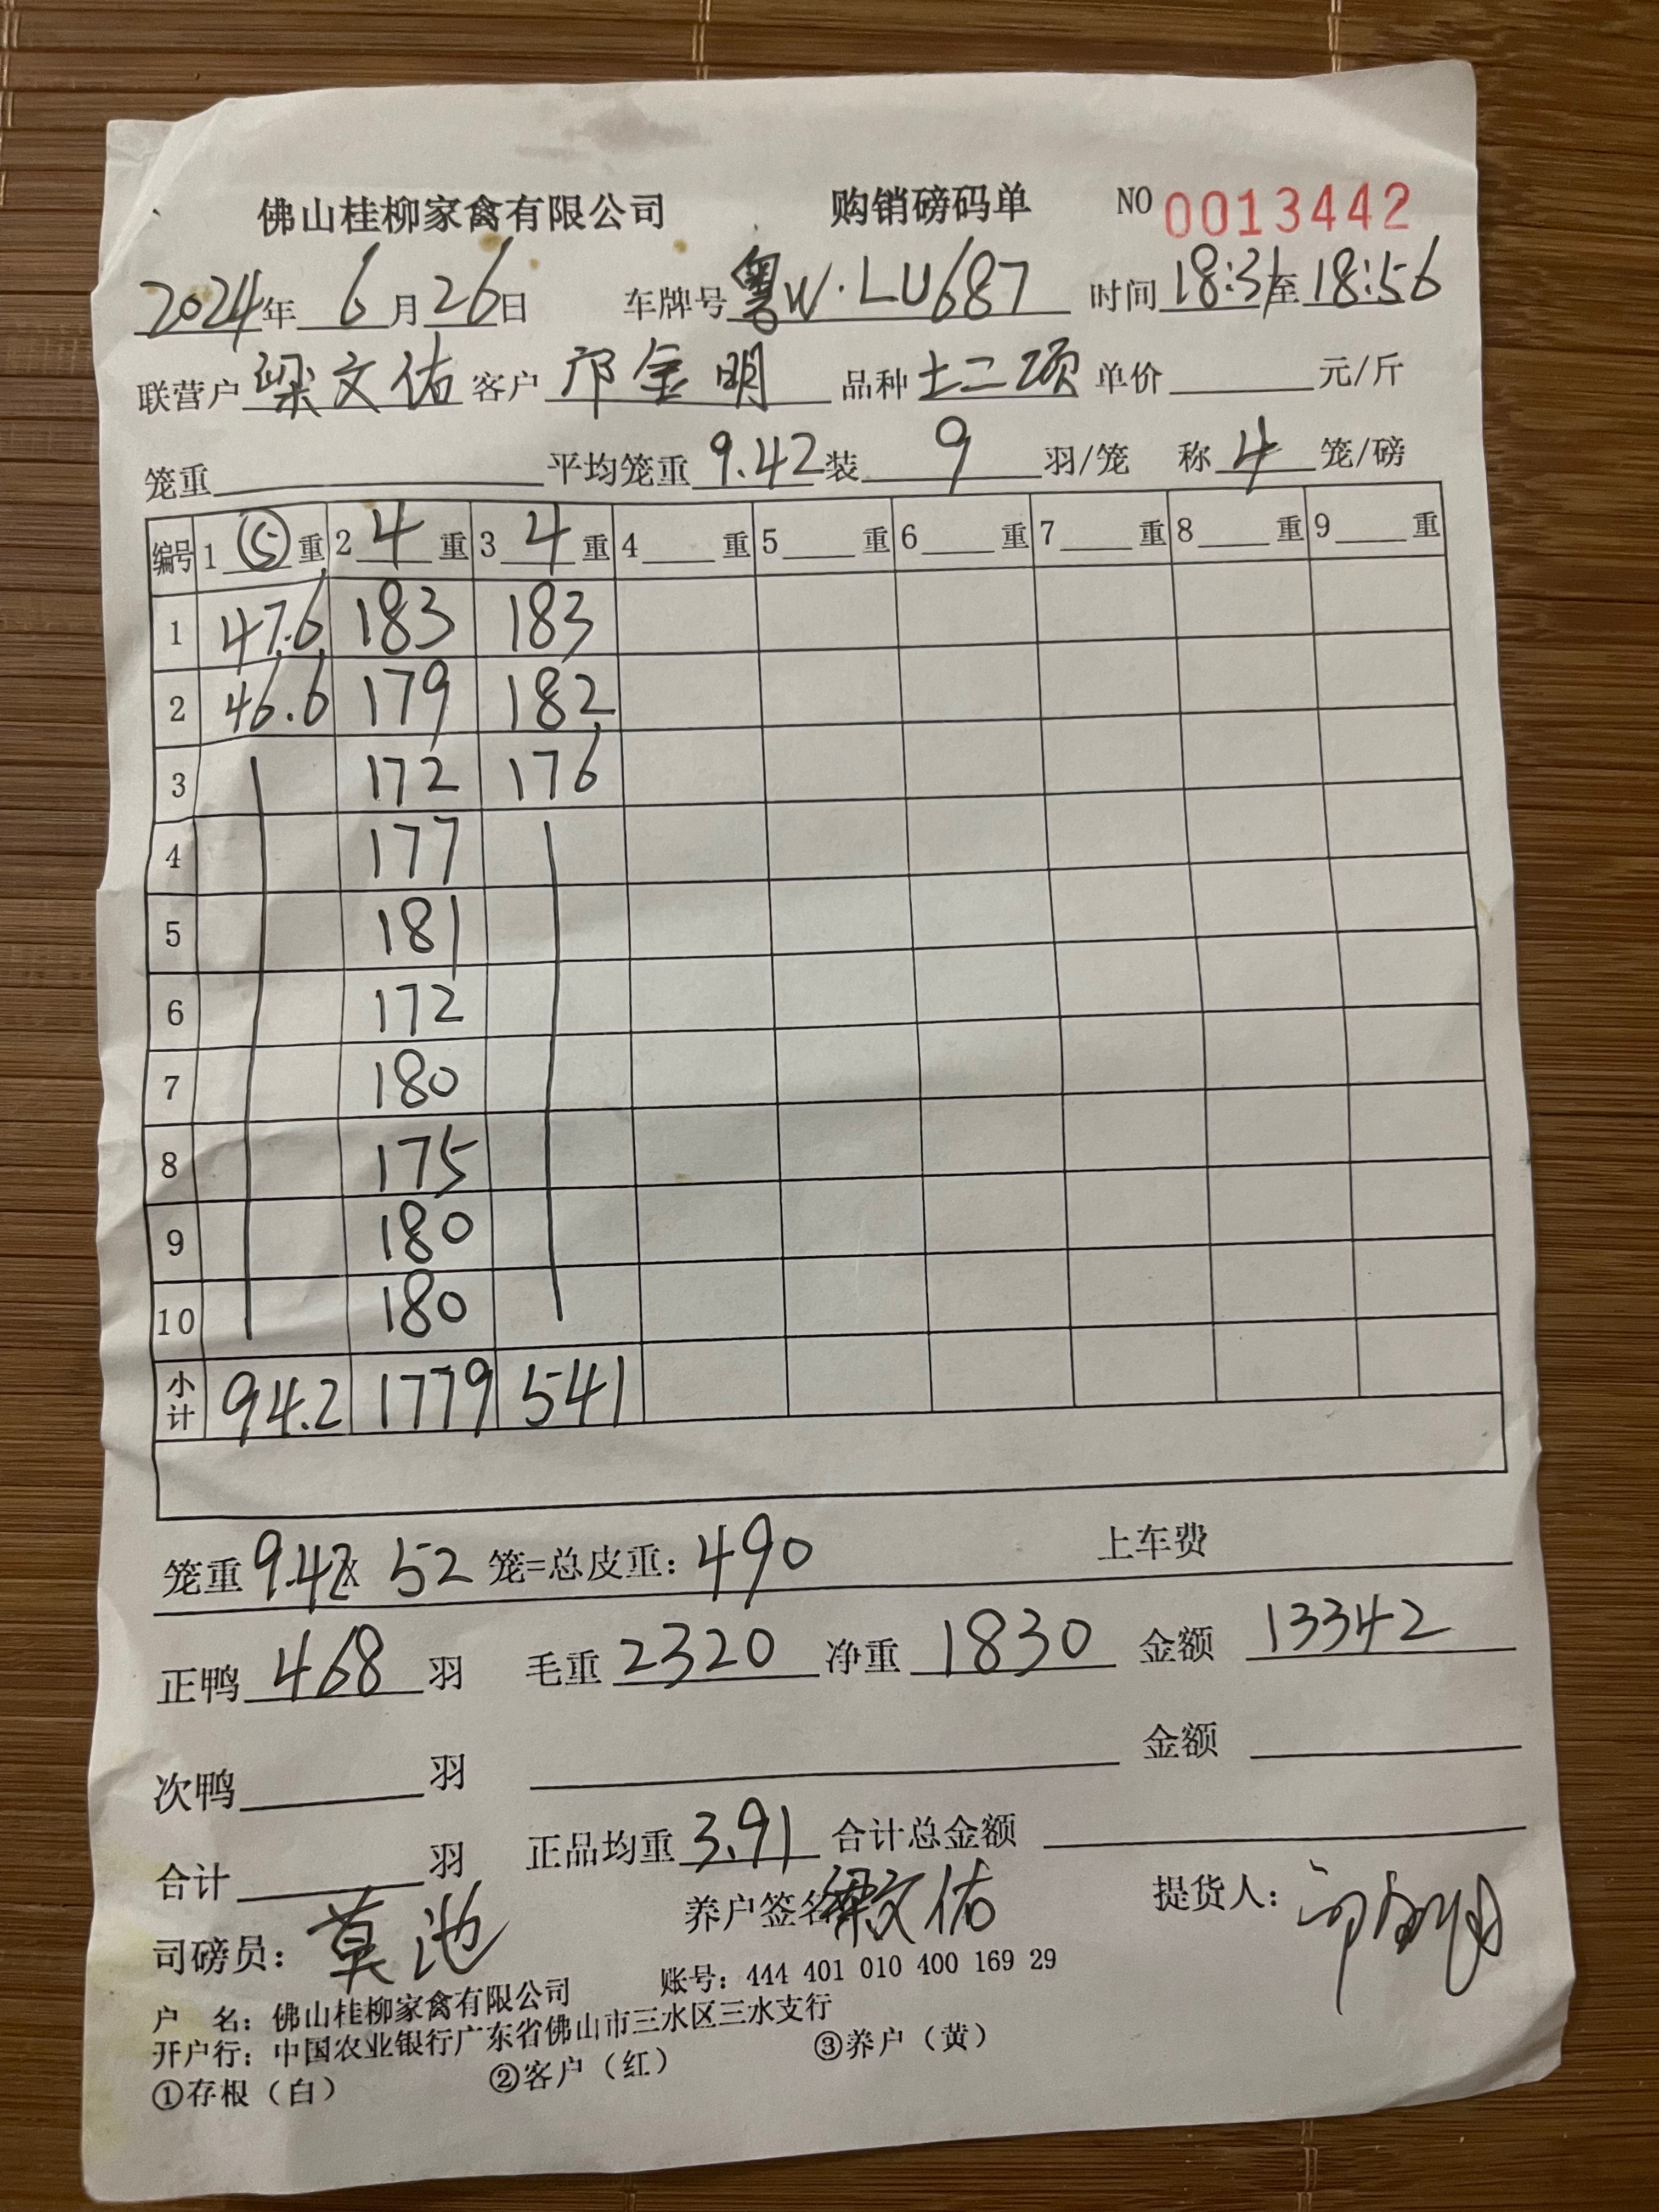 佛山桂柳家禽有限公司 购销磅码单 NO 0013442
2024年 6月26日 车牌号 粤W·LU687 时间 18:31至18:56
联营户 梁文佑 客户 邝金明 品种 土二项 单价 元/斤
笼重 平均笼重 9.42 装 9 羽/笼 称 4 笼/磅
编号 1 ⑤ 重 2 4 重 3 4 重 4 重 5 重 6 重 7 重 8 重 9 重
1 47.6 183 183
2 46.6 179 182
3 172 176
4 177
5 181
6 172
7 180
8 175
9 180
10 180
小计 94.2 1779 541
笼重 9.42x 52 笼=总皮重: 490 上车费
正鸭 468 羽 毛重 2320 净重 1830 金额 13342
次鸭 羽 金额
合计 羽 正品均重 3.91 合计总金额
司磅员: 莫池 养户签名 梁文佑 提货人:
户 名: 佛山桂柳家禽有限公司 账号: 444 401 010 400 169 29
开户行: 中国农业银行广东省佛山市三水区三水支行
①存根（白） ②客户（红） ③养户（黄）